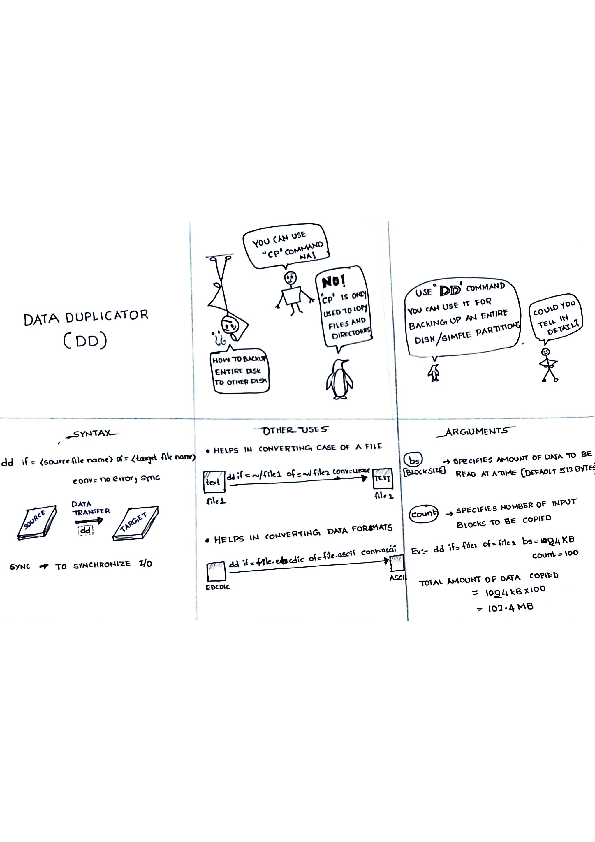 DATA DUPLICATOR
(DD)
YOU CAN USE
"CP" COMMAND
NA!
NO!
'CP' IS ONLY
USED TO COPY
FILES AND
DIRECTORIES
HOW TO BACKUP
ENTIRE DISK
TO OTHER DISK
USE 'DD' COMMAND
YOU CAN USE IT FOR
BACKING UP AN ENTIRE
DISK/SIMPLE PARTITION
COULD YOU
TELL IN
DETAIL?
SYNTAX
dd if = <source file name> of = <target file name>
conv= no error, sync
DATA
TRANSFER
SOURCE
dd
TARGET
SYNC → TO SYNCHRONIZE I/O
OTHER USES
• HELPS IN CONVERTING CASE OF A FILE
dd if = ~/file1 of = ~/file2 conv=ucase
text
TEXT
file1
file2
• HELPS IN CONVERTING DATA FORMATS
dd if = file.ebcdic of = file.ascii conv=ascii
EBCDIC
ASCII
ARGUMENTS
bs
[BLOCKSIZE]
→ SPECIFIES AMOUNT OF DATA TO BE
READ AT A TIME [DEFAULT 512 BYTE
count
→ SPECIFIES NUMBER OF INPUT
BLOCKS TO BE COPIED
Ex:- dd if= file1 of= file2 bs=1024KB
count=100
TOTAL AMOUNT OF DATA COPIED
= 1024KB×100
= 102.4 MB